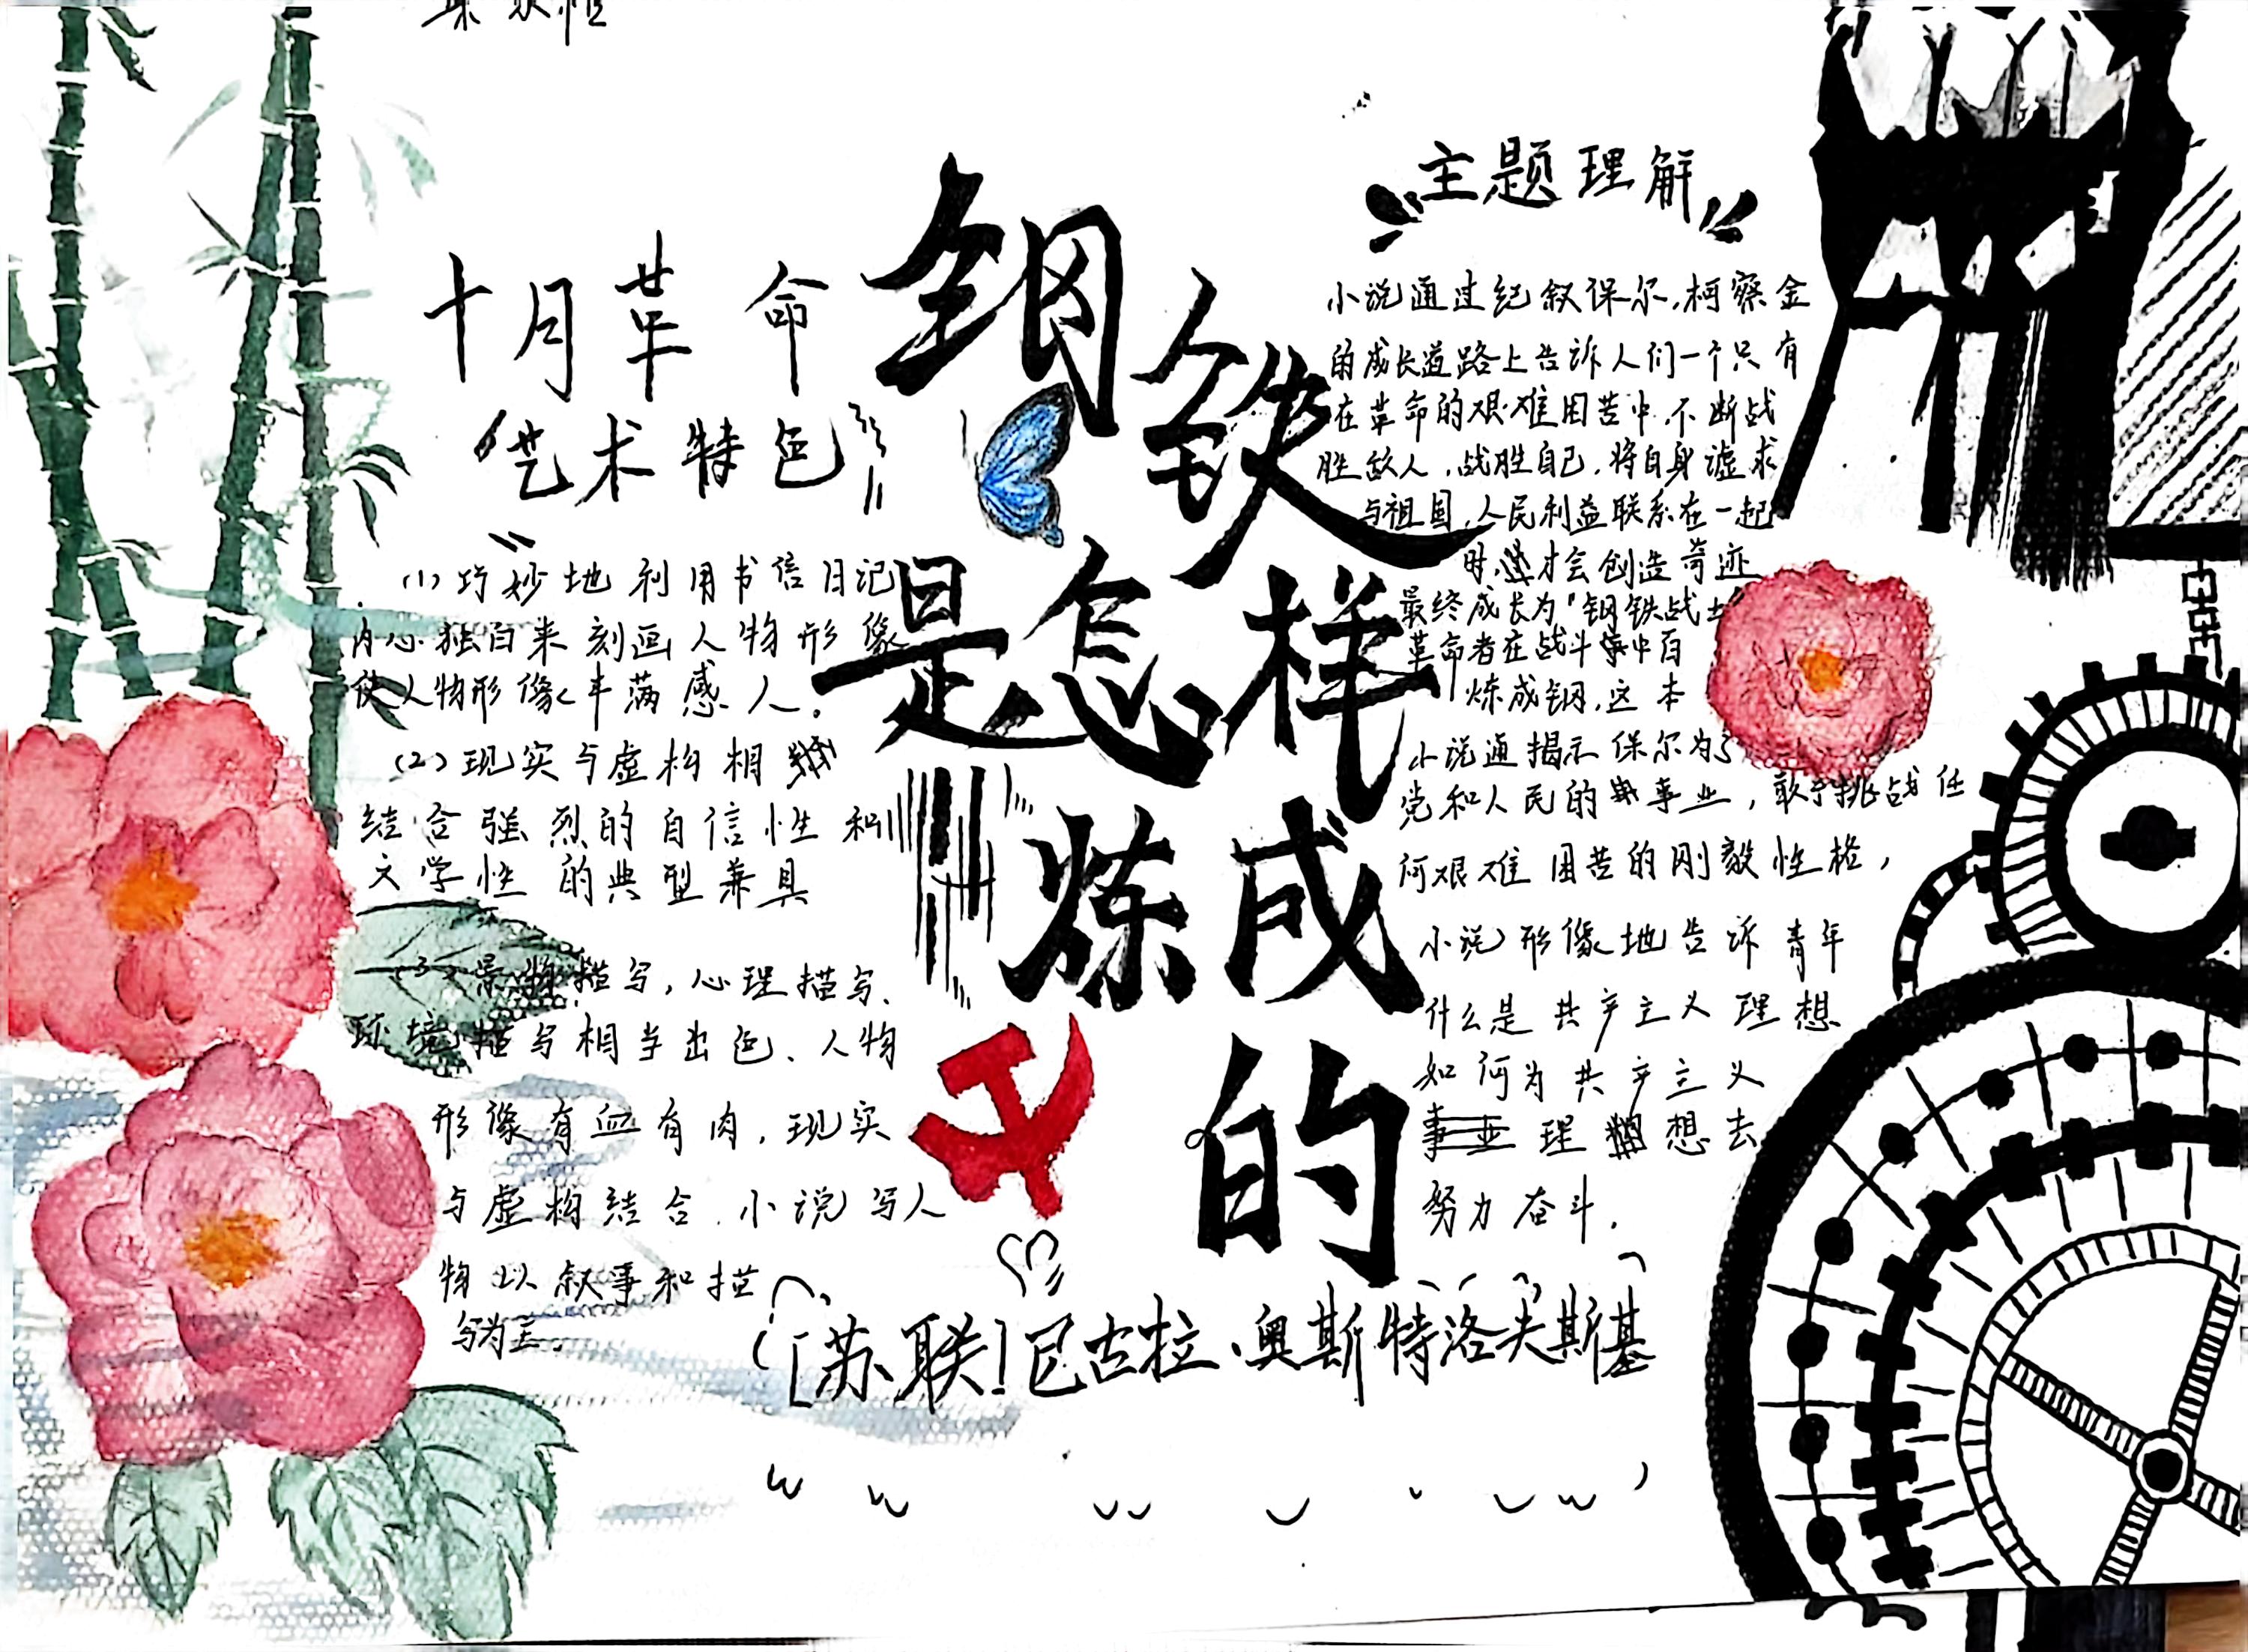 钢铁
是怎样
炼成
的
[苏联]尼古拉·奥斯特洛夫斯基
十月革命
艺术特色
(1)巧妙地利用书信日记
内心独白来刻画人物形像
使人物形像丰满感人。
(2)现实与虚构相
结合强烈的自信性和
文学性的典型兼具
(3)景物描写,心理描写、
环境描写相当出色、人物
形像有血有肉,现实
与虚构结合.小说写人
物以叙事和描
写为主.
主题理解
小说通过纪叙保尔.柯察金
的成长道路上告诉人们一个只有
在革命的艰难困苦中不断战
胜敌人,战胜自己,将自身 求
与祖国,人民利益联系在一起
时,才会创造奇迹
最终成长为"钢铁战士
革命者在战斗中百
炼成钢,这本
小说通揭示保尔为了
党和人民的事业,敢于挑战任
何艰难困苦的刚毅性格,
小说形像地告诉青年
什么是共产主义理想
如何为共产主义
事业理想去
努力奋斗.